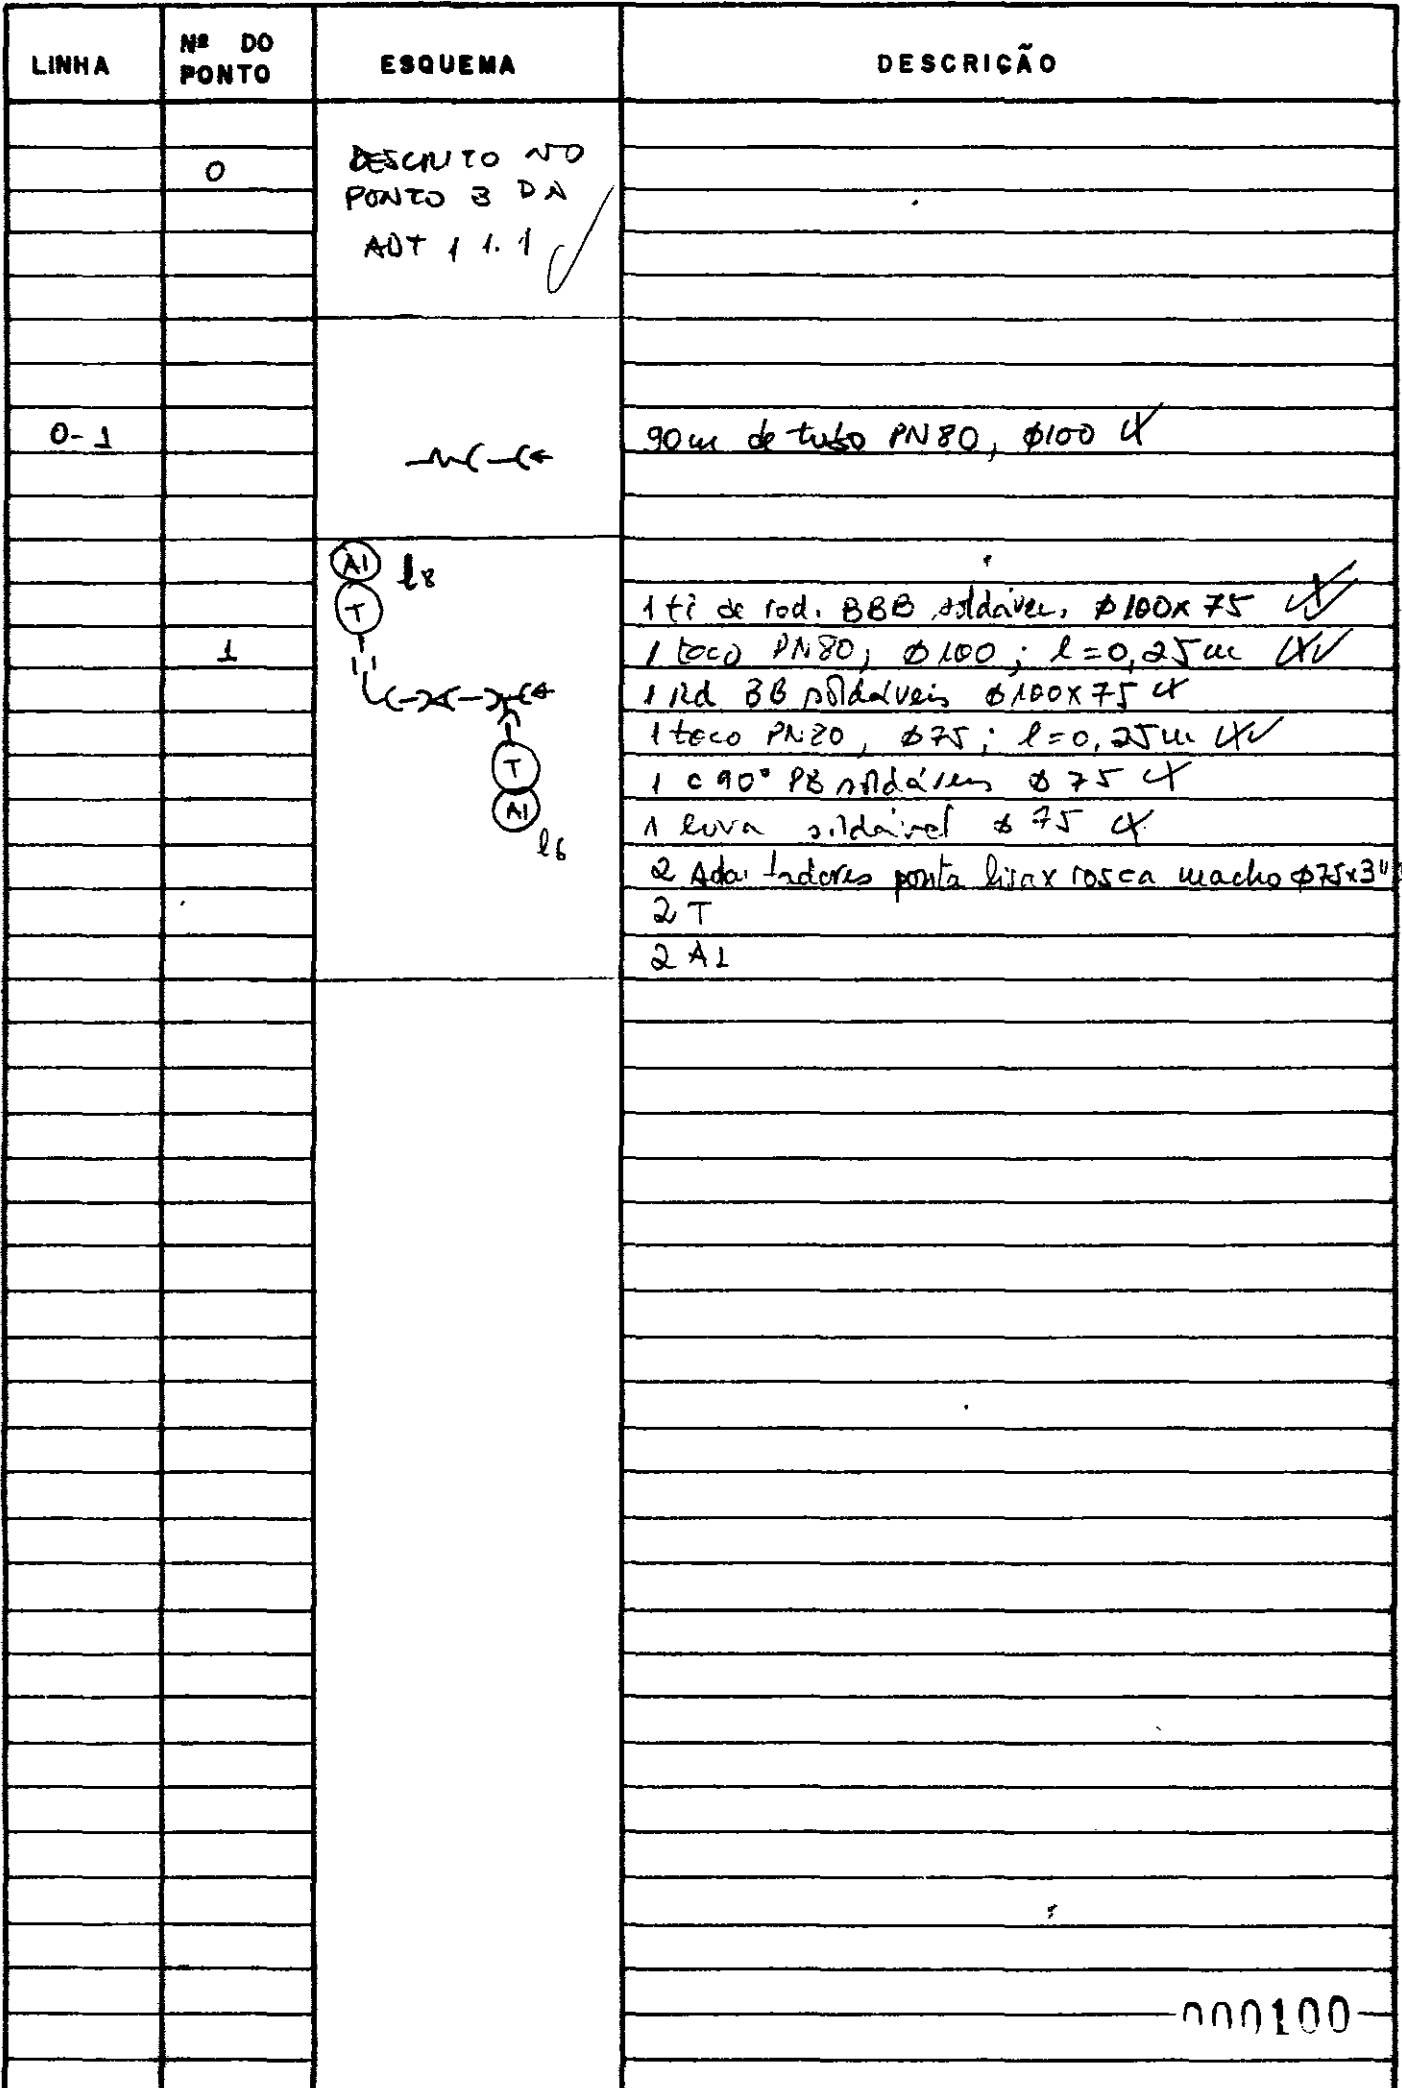 LINHA Nº DO PONTO ESQUEMA DESCRIÇÃO
0 DESCRITO NO
PONTO 3 DA
ADT 1 1.1
0-1 90m de tubo PN80, ø100
A1 l8
T
1
T
A1
l6
1 tê de red. BBB soldável, ø100x75
1 toco PN80; ø100; l=0,25m
1 red BB soldáveis ø100x75
1 toco PN80, ø75; l=0,25m
1 c 90° PB soldáveis ø75
1 luva soldável ø75
2 Adaptadores ponta lisa x rosca macho ø75x3"
2 T
2 A1
000100